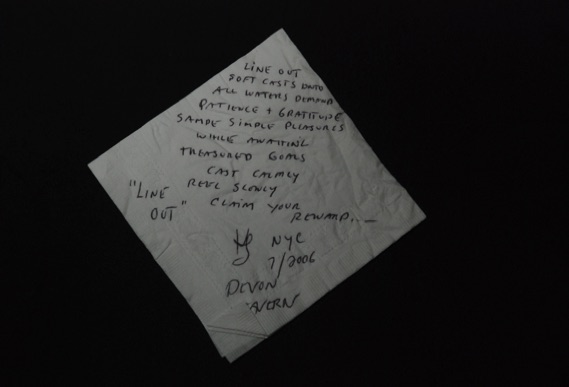 LINE OUT
SOFT CASTS ONTO
ALL WATERS DEMAND
PATIENCE + GRATITUDE
SAMPLE SIMPLE PLEASURES
WHILE AWAITING
TREASURED GOALS
CAST CALMLY
REEL SLOWLY
CLAIM YOUR
REWARD...
"LINE
OUT"
NYC
7/2006
DEVON
TAVERN